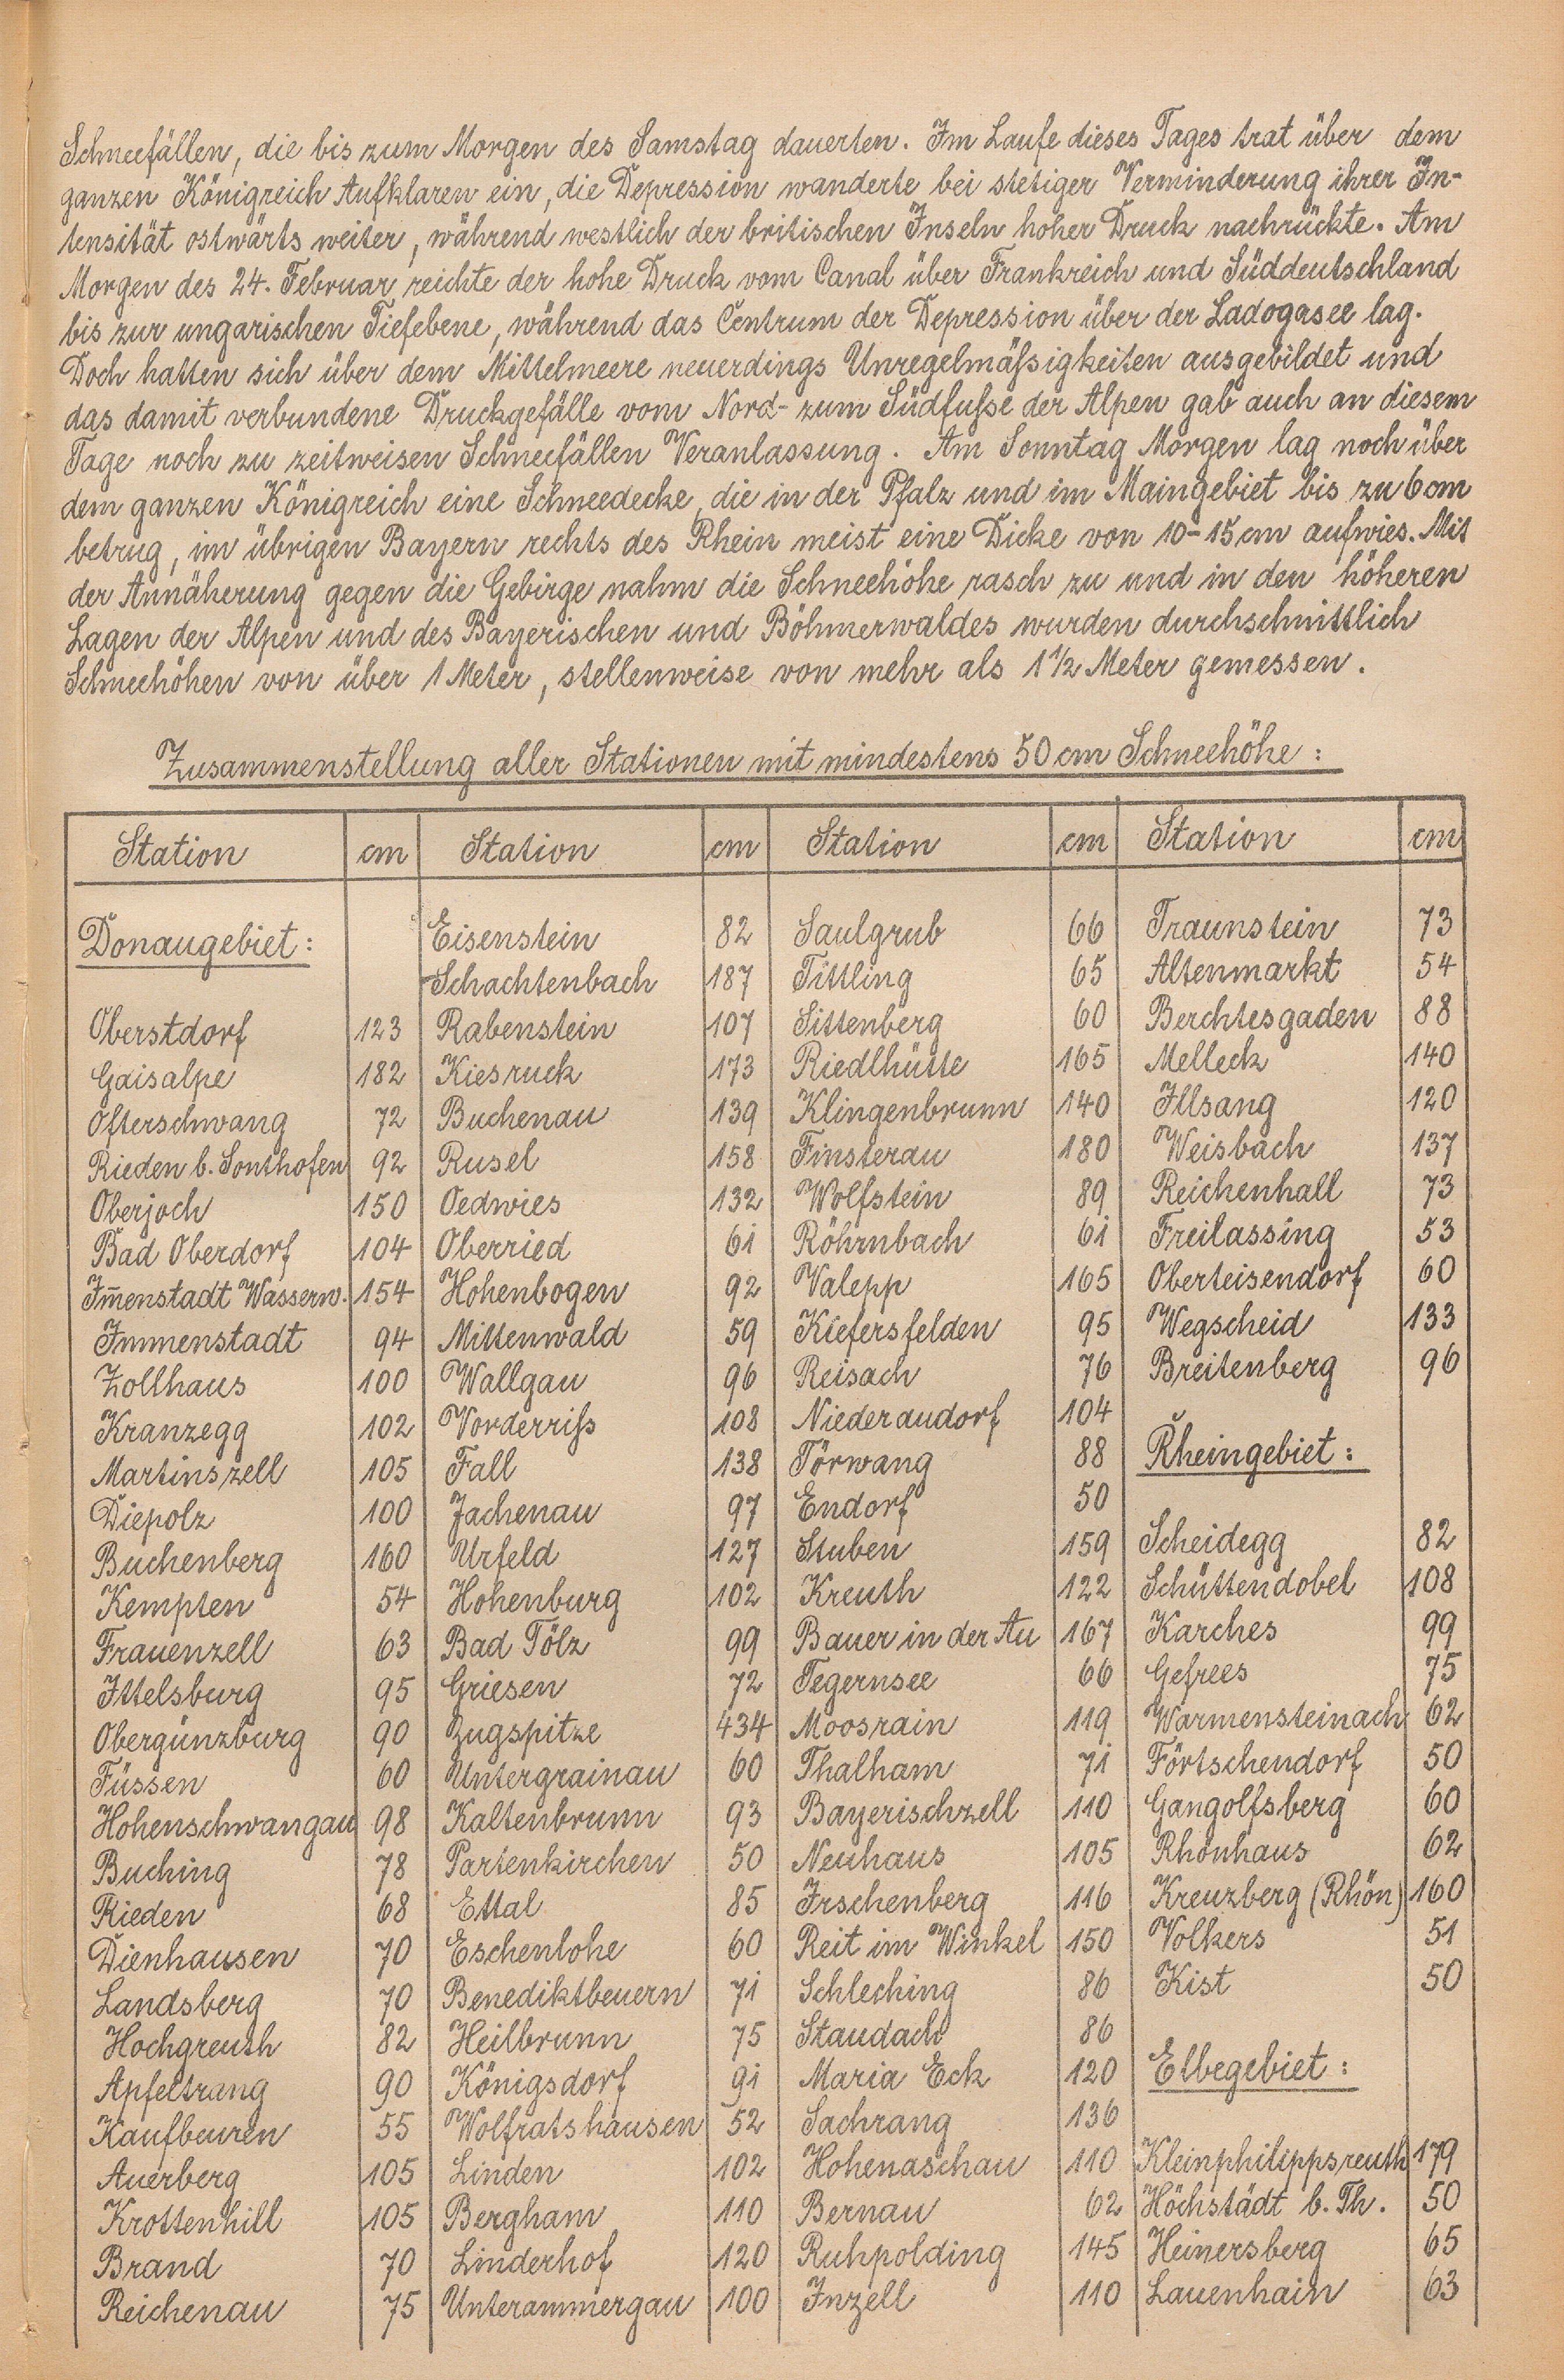 Schneefällen, die bis zum Morgen des Samstag dauerten. Im Laufe dieses Tages trat über dem
ganzen Königreich Aufklaren ein, die Depression wanderte bei stetiger Verminderung ihrer In-
tensität ostwärts weiter, während westlich der britischen Inseln hoher Druck nachrückte. Am
Morgen des 24. Februar reichte der hohe Druck vom Canal über Frankreich und Süddeutschland
bis zur ungarischen Tiefebene, während das Centrum der Depression über der Ladogasee lag.
Doch hatten sich über dem Mittelmeere neuerdings Unregelmäßigkeiten ausgebildet und
das damit verbundene Druckgefälle vom Nord- zum Südfuße der Alpen gab auch an diesem
Tage noch zu zeitweisen Schneefällen Veranlassung. Am Sonntag Morgen lag noch über
dem ganzen Königreich eine Schneedecke, die in der Pfalz und im Maingebiet bis zu 6 cm
betrug, im übrigen Bayern rechts des Rhein meist eine Dicke von 10-15 cm aufwies. Mit
der Annäherung gegen die Gebirge nahm die Schneehöhe rasch zu und in den höheren
Lagen der Alpen und des Bayerischen und Böhmerwaldes wurden durchschnittlich
Schneehöhen von über 1 Meter, stellenweise von mehr als 1 1/2 Meter gemessen.
Zusammenstellung aller Stationen mit mindestens 50 cm Schneehöhe:
Station cm
Donaugebiet:
Oberstdorf 123
Gaisalpe 182
Ofterschwang 72
Rieden b. Sonthofen 92
Oberjoch 150
Bad Oberdorf 104
Im̄enstadt Wasserw. 154
Immenstadt 94
Zollhaus 100
Kranzegg 102
Martinszell 105
Diepolz 100
Buchenberg 160
Kempten 54
Frauenzell 63
Ittelsburg 95
Obergünzburg 90
Füssen 60
Hohenschwangau 98
Buching 78
Rieden 68
Dienhausen 70
Landsberg 70
Hochgreuth 82
Apfeltrang 90
Kaufbeuren 55
Auerberg 105
Krottenhill 105
Brand 70
Reichenau 75
Station cm
Eisenstein 82
Schachtenbach 187
Rabenstein 107
Kiesruck 173
Buchenau 139
Rusel 158
Oedwies 132
Oberried 61
Hohenbogen 92
Mittenwald 59
Wallgau 96
Vorderriß 108
Fall 138
Jachenau 97
Urfeld 127
Hohenburg 102
Bad Tölz 99
Griesen 72
Zugspitze 434
Untergrainau 60
Kaltenbrunn 93
Partenkirchen 50
Ettal 85
Eschenlohe 60
Benediktbeuern 71
Heilbrunn 75
Königsdorf 91
Wolfratshausen 52
Linden 102
Bergham 110
Linderhof 120
Unterammergau 100
Station cm
Saulgrub 66
Tittling 65
Sittenberg 60
Riedlhütte 165
Klingenbrunn 140
Finsterau 180
Wolfstein 89
Röhrnbach 61
Valepp 165
Kiefersfelden 95
Reisach 76
Niederaudorf 104
Törwang 88
Endorf 50
Stuben 159
Kreuth 122
Bauer in der Au 167
Tegernsee 66
Moosrain 119
Thalham 71
Bayerischzell 110
Neuhaus 105
Irschenberg 116
Reit im Winkel 150
Schleching 86
Staudach 86
Maria Eck 120
Sachrang 136
Hohenaschau 110
Bernau 62
Ruhpolding 145
Inzell 110
Station cm
Traunstein 73
Altenmarkt 54
Berchtesgaden 88
Melleck 140
Illsang 120
Weisbach 137
Reichenhall 73
Freilassing 53
Oberteisendorf 60
Wegscheid 133
Breitenberg 96
Rheingebiet:
Scheidegg 82
Schüttendobel 108
Karches 99
Gefrees 75
Warmensteinach 62
Förtschendorf 50
Gangolfsberg 60
Rhönhaus 62
Kreuzberg (Rhön) 160
Volkers 51
Kist 50
Elbegebiet:
Kleinphilippsreuth 179
Höchstädt b. Th. 50
Heinersberg 65
Lauenhain 63